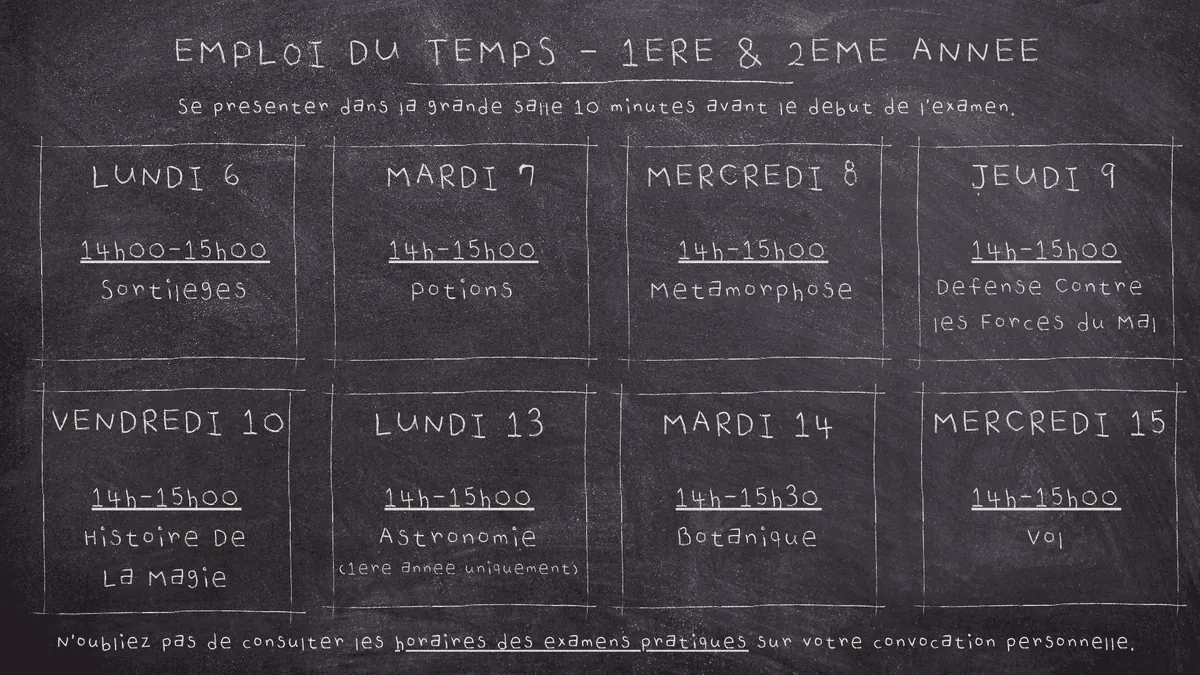 EMPLOI DU TEMPS - 1ERE & 2EME ANNEE
Se presenter dans la grande salle 10 minutes avant le debut de l'examen.
LUNDI 6
14h00-15h00
Sortileges
MARDI 7
14h-15h00
Potions
MERCREDI 8
14h-15h00
Metamorphose
JEUDI 9
14h-15h00
Defense Contre
les Forces du Mal
VENDREDI 10
14h-15h00
Histoire De
La Magie
LUNDI 13
14h-15h00
Astronomie
(1ere annee uniquement)
MARDI 14
14h-15h30
Botanique
MERCREDI 15
14h-15h00
Vol
N'oubliez pas de consulter les horaires des examens pratiques sur votre convocation personnelle.